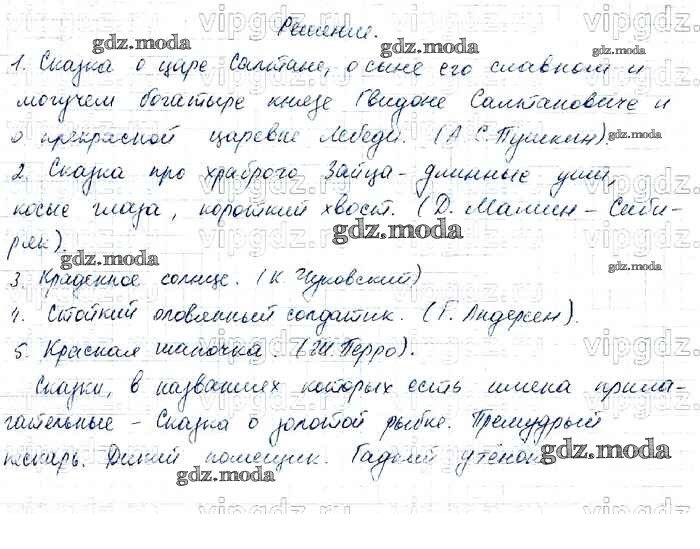 Решение.
1. Сказка о царе Салтане, о сыне его славном и
могучем богатыре князе Гвидоне Салтановиче и
о прекрасной царевне Лебеди. (А.С. Пушкин)
2. Сказка про храброго Зайца - длинные уши,
косые глаза, короткий хвост. (Д. Мамин - Сиби-
ряк).
3. Краденное солнце. (К. Чуковский)
4. Стойкий оловянный солдатик. (Г. Андерсен).
5. Красная шапочка. (Ш. Перро).
Сказки, в названиях которых есть имена прила-
гательные - Сказка о золотой рыбке. Премудрый
пескарь. Дикий помещик. Гадкий утёнок
gdz.moda
gdz.moda
gdz.moda
gdz.moda
gdz.moda
gdz.moda
gdz.moda
gdz.moda
gdz.moda
gdz.moda
vipgdz.ru